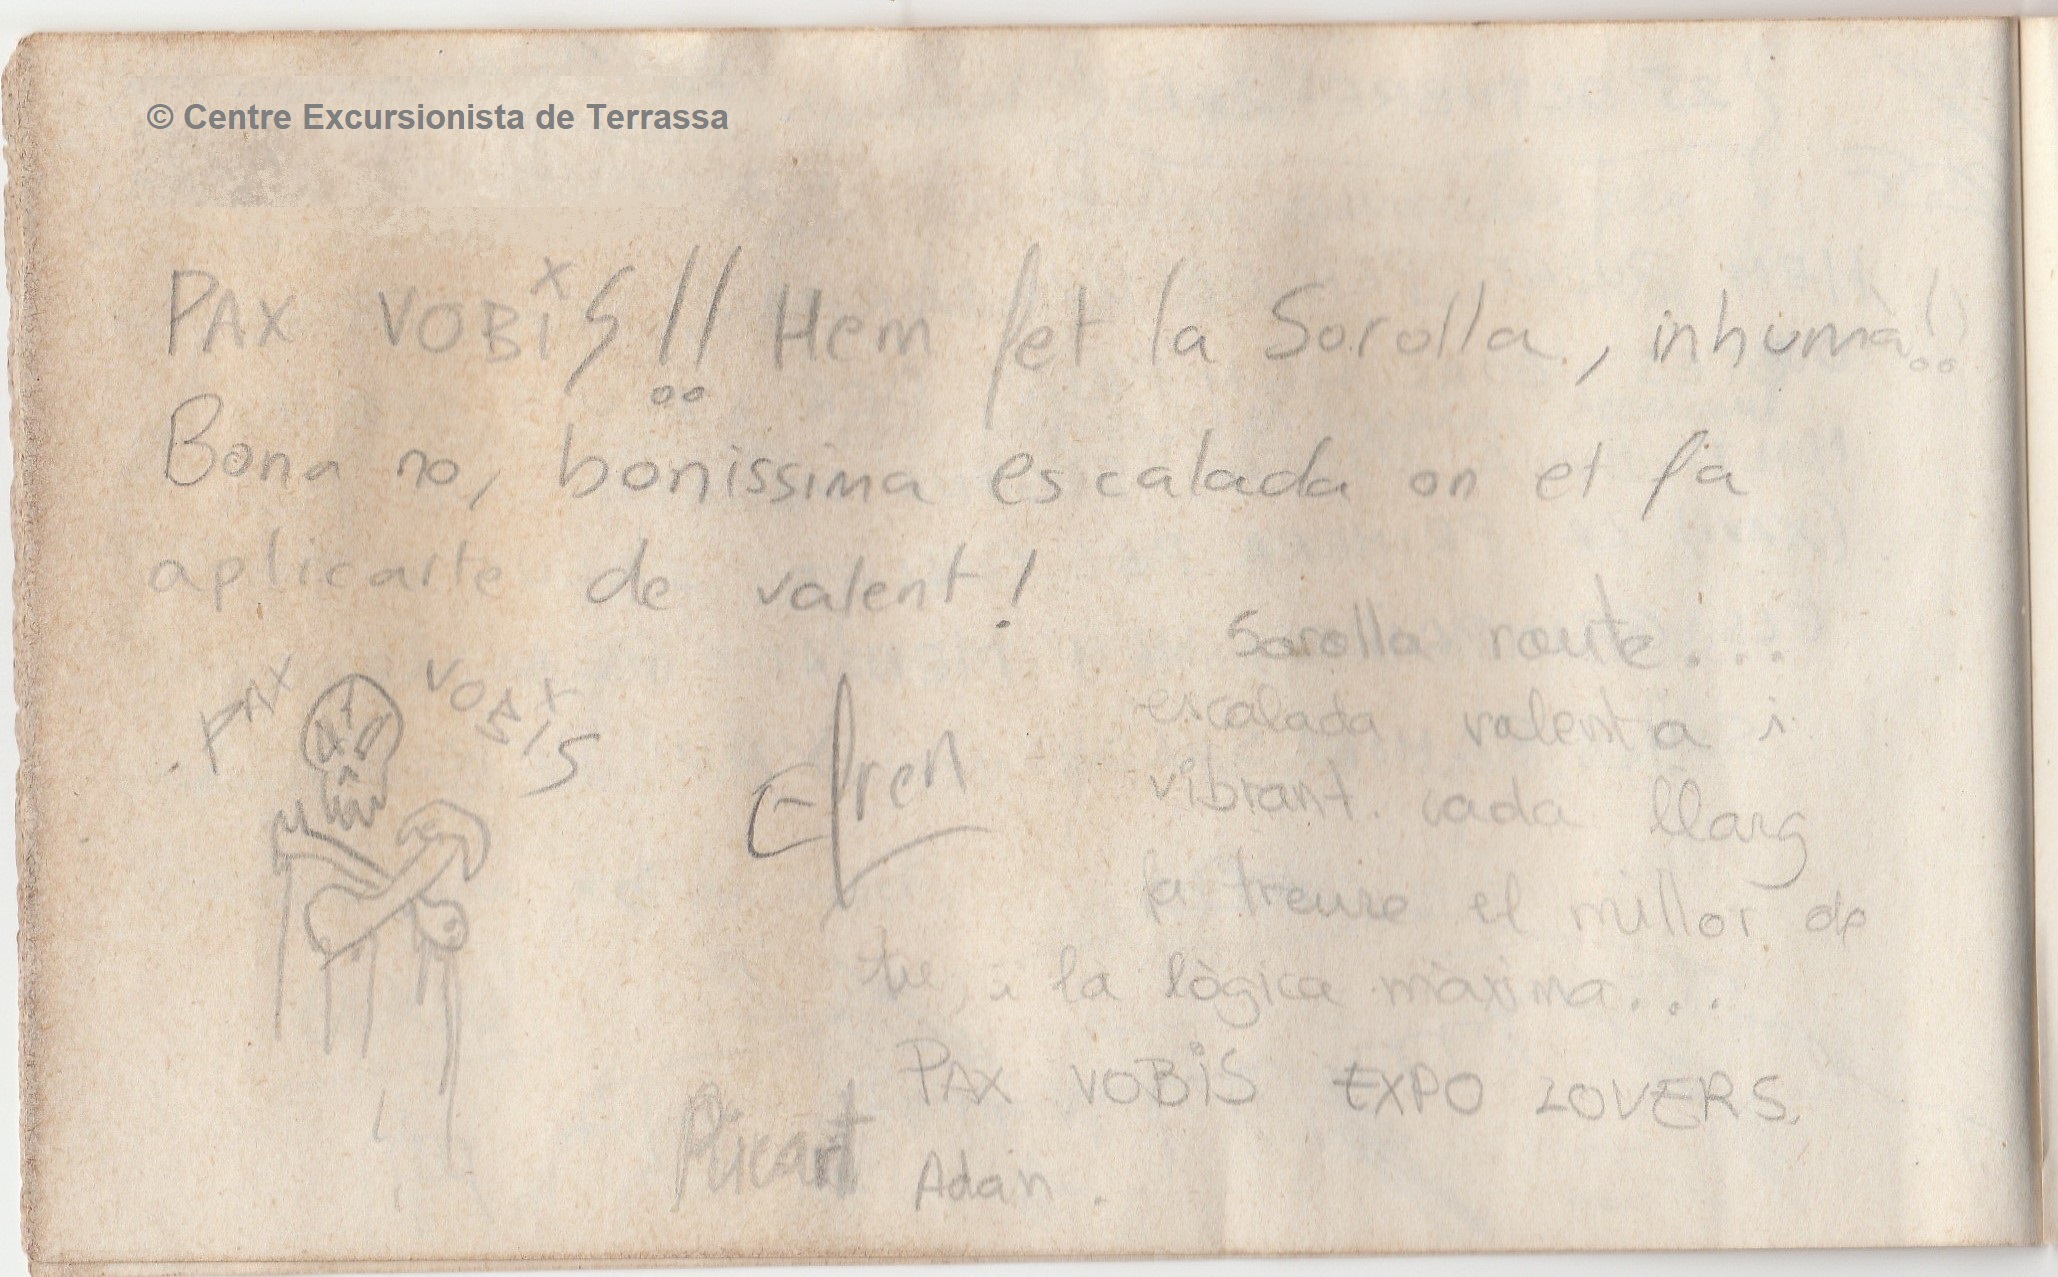 © Centre Excursionista de Terrassa
PAX VOBiS!! Hem fet la Sorolla, inhumà!!
Bona no, bonissima escalada on et fa
aplicarte de valent!
PAX VOBIS
Efren
Sorolla route...
escalada valenta i
vibrant. cada llarg
fa treure el millor de
tu, i la lògica màxima...
PAX VOBiS EXPO LOVERS.
Ricart Adán.